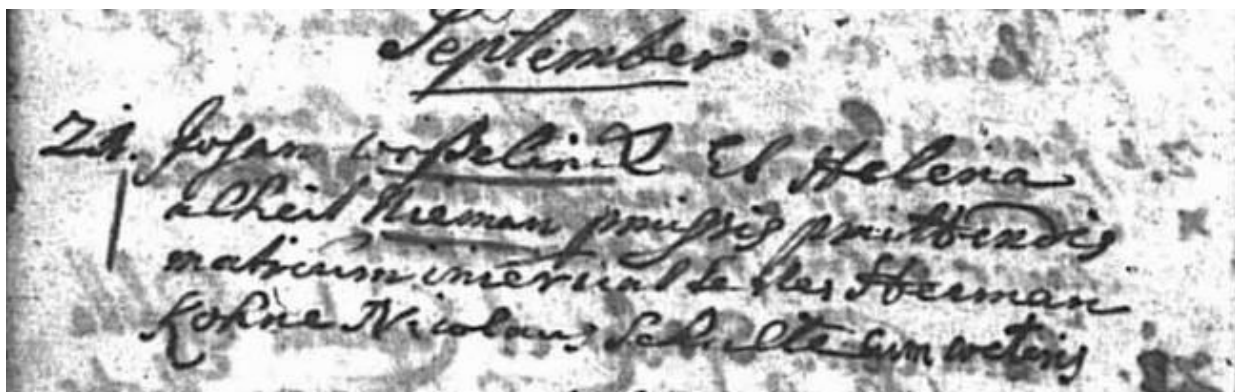 September.
21. Johan woßelinck Et Helena
alheit Nieman praemissis praemittendis
matrium inierunt testes Herman
Kohne Nicolaus Schulte cum ceteris